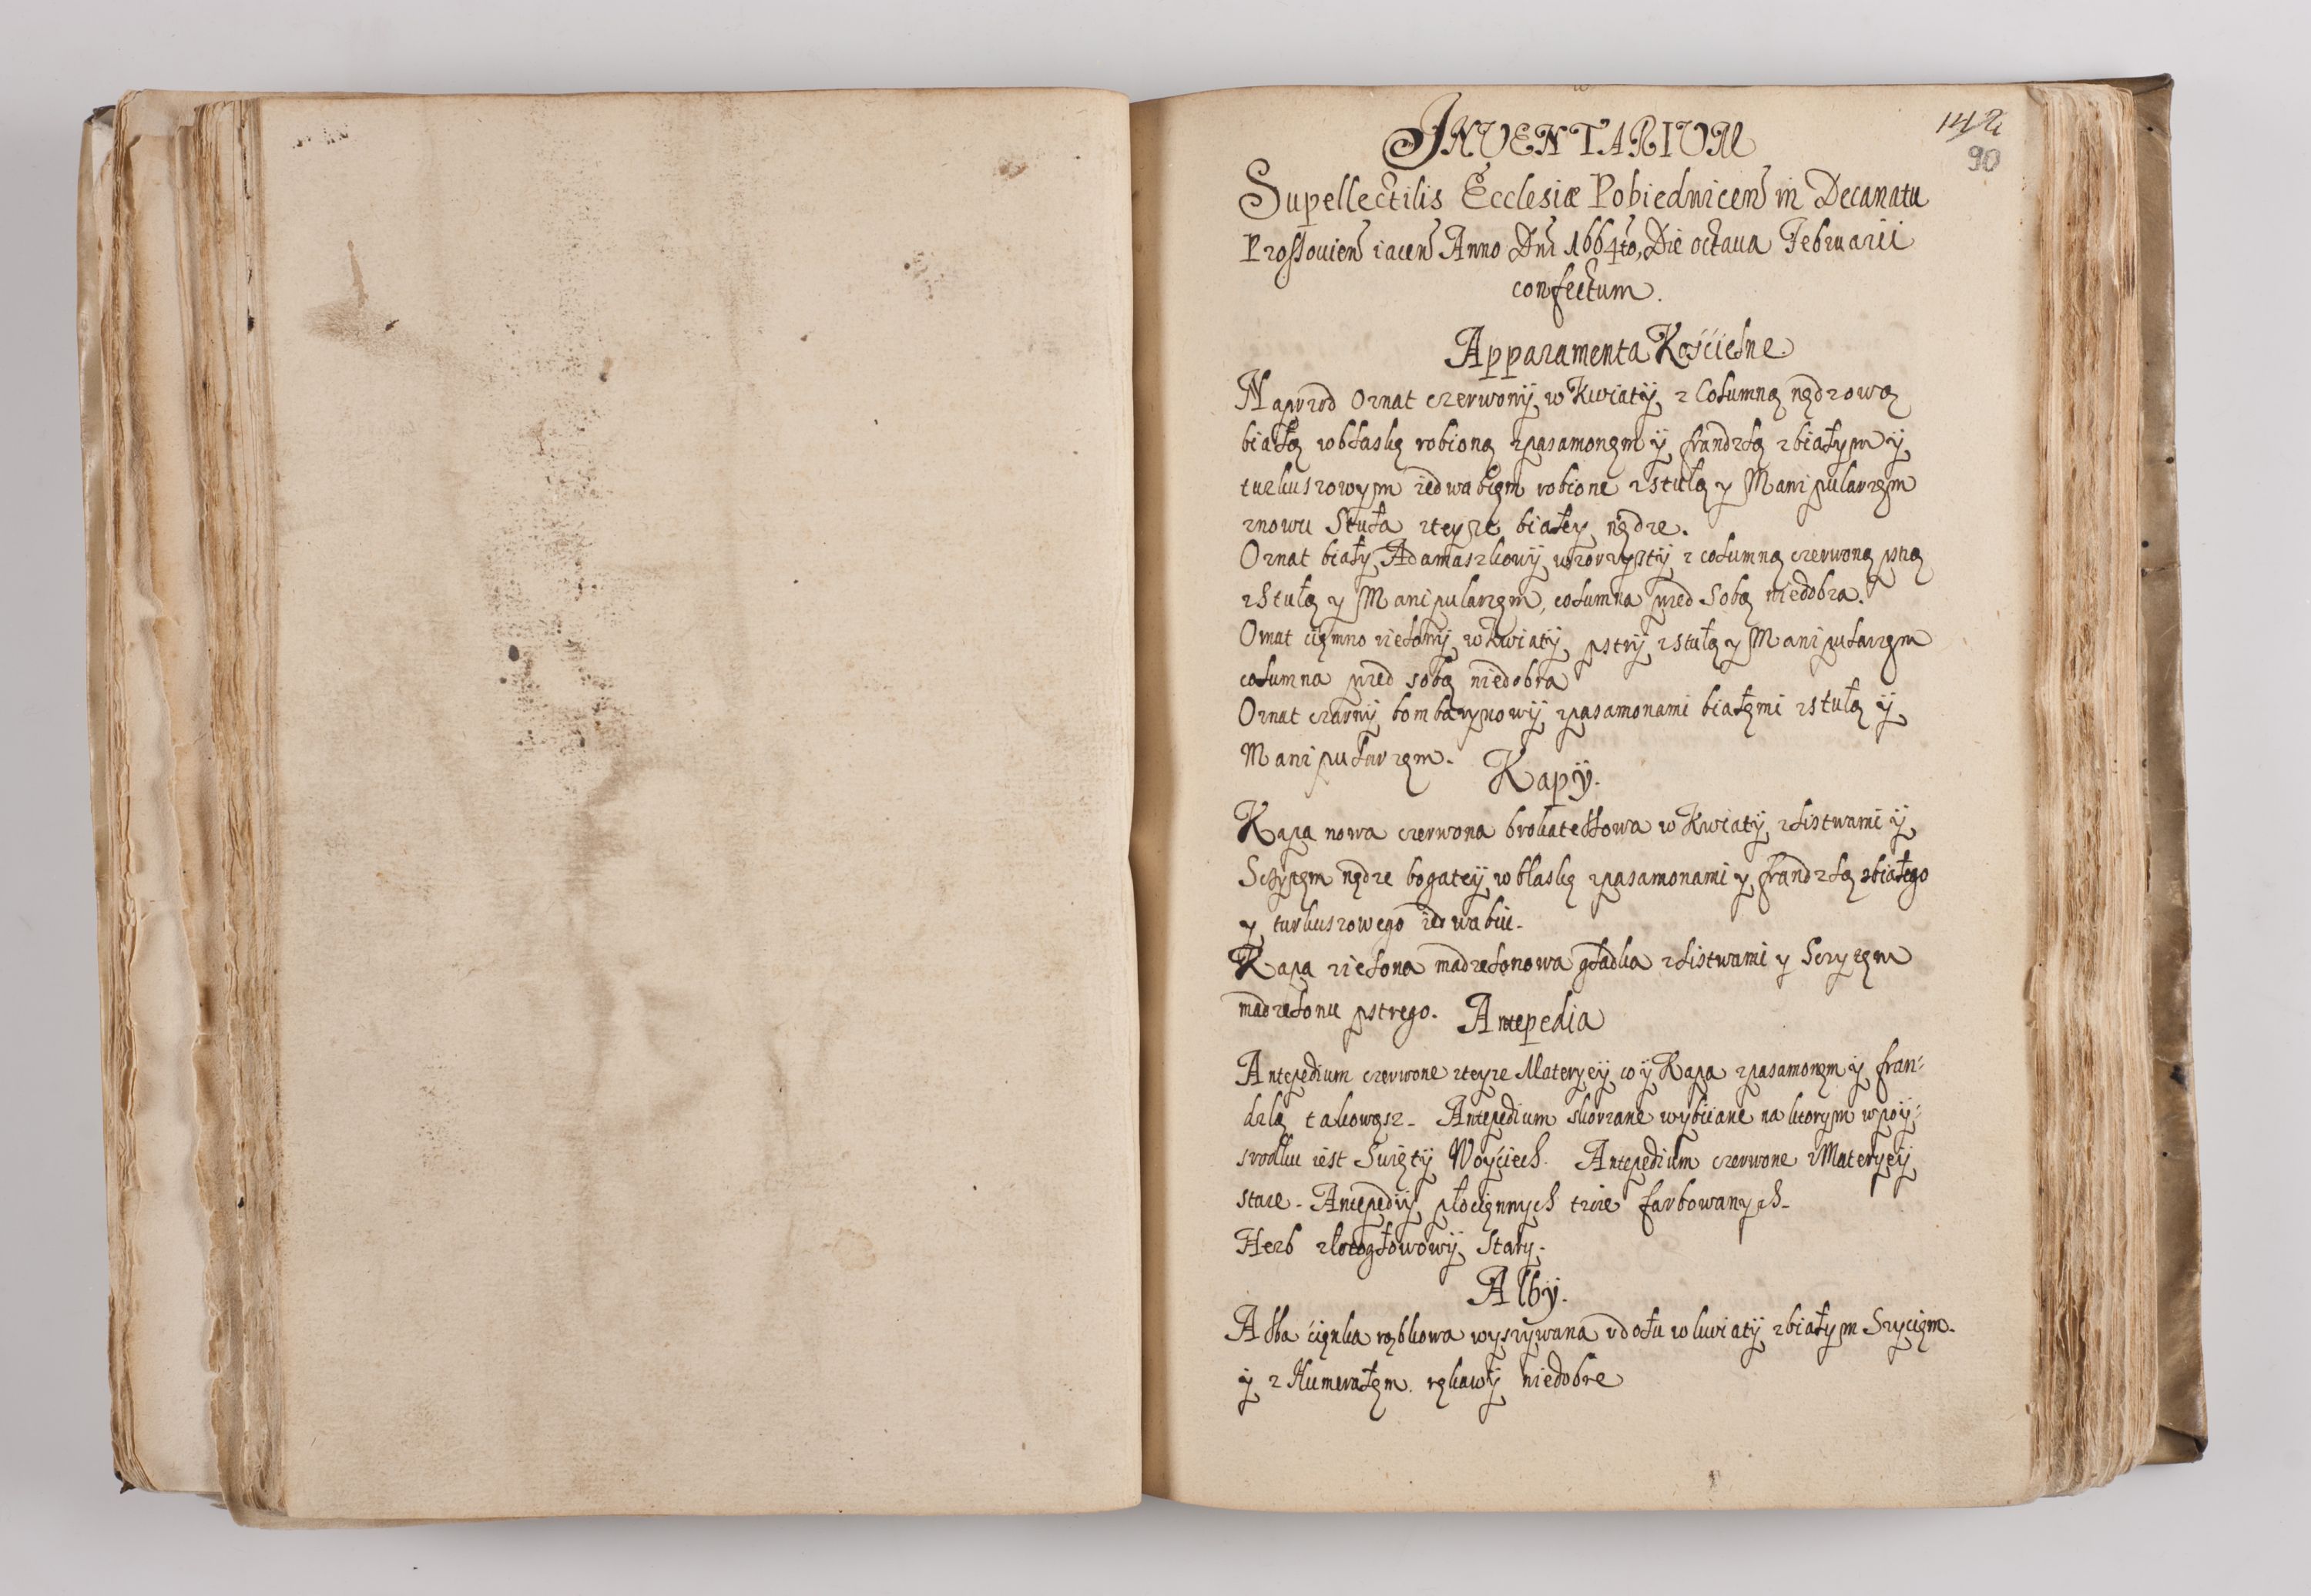 INVENTARIUM
142
90
Supellectilis Ecclesiæ Pobiednicen in Decanatu
Prossouien iacen Anno Dni 1664to, Die octaua Februarii
confectum.
Apparamenta Kościelne
Naprzod Ornat czerwony w Kwiaty z Columną nędzową
białą w blaskę robioną z pasamonęm y frandzlą z biáłym y
turkusowym iedwabięm robione z stułą y Manipularzęm
znowu Stuła z teyze białey nędze.
Ornat biały Adamaszkowy wzorzysty z columną czerwoną pstrą
z Stułą y Manipularzęm, columna przed Sobą niedobra.
Ornat cięmno zielony w Kwiaty pstry z stułą y Manipularzęm
columna przed sobą niedobra
Ornat czarny bombazynowy z pasamonami białęmi z stułą y
Manipularzęm.
Kapy.
Kapa nowa czerwona brokatellowa w Kwiaty z listwami y
Sczytęm nędze bogatey w blaskę z pasamonami y frandzlą z białego
y turkusowego iedwabiu.
Kapa zielona madzelonowa gładka z listwami y Sczytęm
madzelonu pstrego.
Antepedia
Antepedium czerwone z teyze Materyey co y Kapa z pasamonęm y fran:
dzlą takowąsz. Antepedium skorzane wybiiane na ktorym w poy:
srodku iest Swięty Woyciech. Antepedium czerwone z Materyey
stare. Antepedij płociennych trzie farbowanych.
Herb złotogłowowy Stary.
Alby.
Alba ciękka rąbkowa wyszywana v dołu w kwiaty z białym Szycięm.
y z Humerałęm. rękawy niedobre